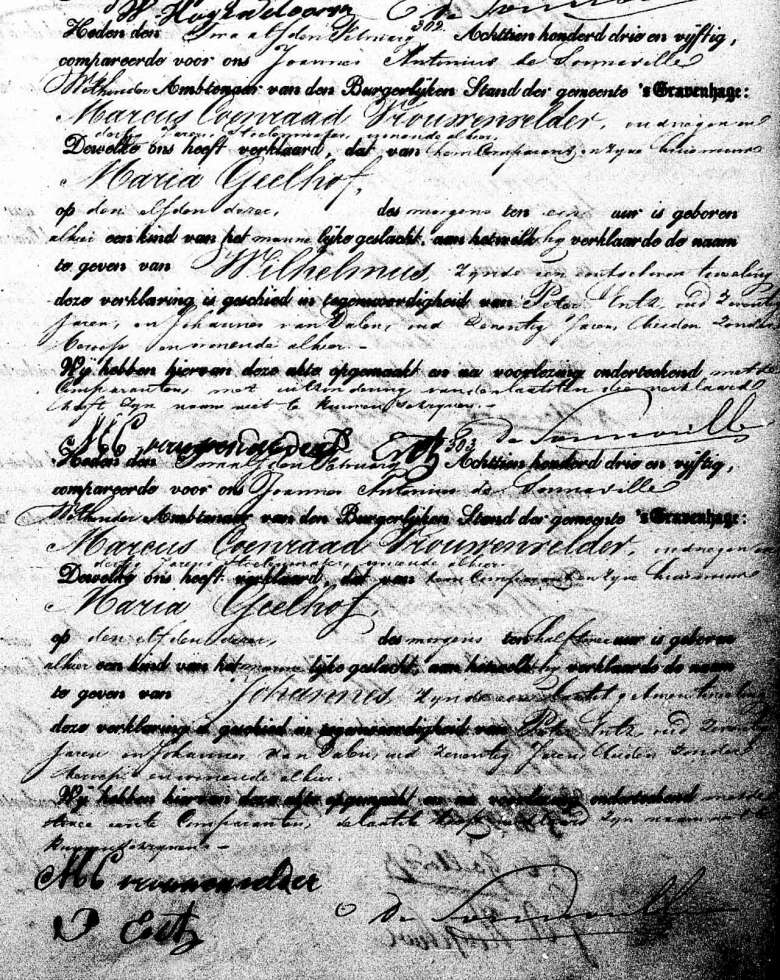 W Hoogendoorn de Sonnaville
302
Heden den Twaalfden Februarij Achttien honderd drie en vijftig,
compareerde voor ons Joannes Antonius de Sonnaville
Wethouder Ambtenaar van den Burgerlijken Stand der gemeente 's Gravenhage:
Marcus Coenraad Vrouwenvelder, oud negen en
dertig Jaren, Stoelenmaker, wonende alhier,
Dewelke ons heeft verklaard, dat van hem Comparant en zijne huisvrouw
Maria Geelhof,
op den elfden dezer, des morgens ten een uur is geboren
alhier een kind van het mannelijke geslacht, aan hetwelk hij verklaarde de naam
te geven van Wilhelmus zijnde een tweeling
deze verklaring is geschied in tegenwoordigheid van Peter Ertz, oud Zeventig
Jaren, en Johannes van Dalen, oud Zeventig Jaren, beiden zonder
beroep en wonende alhier.-
Wij hebben hiervan deze akte opgemaakt en na voorlezing onderteekend met de
Comparanten, met uitzondering van den laatsten die verklaard
heeft zijn naam niet te kunnen schrijven.
MC vrouwenvelder P Ertz de Sonnaville
303
Heden den Twaalfden Februarij Achttien honderd drie en vijftig,
compareerde voor ons Joannes Antonius de Sonnaville
Wethouder Ambtenaar van den Burgerlijken Stand der gemeente 's Gravenhage:
Marcus Coenraad Vrouwenvelder, oud negen en
dertig Jaren, Stoelenmaker, wonende alhier.
Dewelke ons heeft verklaard, dat van hem Comparant en zijne huisvrouw
Maria Geelhof,
op den elfden dezer, des morgens ten half twee uur is geboren
alhier een kind van het mannelijke geslacht, aan hetwelk hij verklaarde de naam
te geven van Johannes, zijnde een laatst geboren tweeling
deze verklaring is geschied in tegenwoordigheid van Peter Ertz, oud Zeventig
Jaren en Johannes van Dalen, oud Zeventig Jaren, beiden zonder
beroep en wonende alhier.
Wij hebben hiervan deze akte opgemaakt en na voorlezing onderteekend met de
twee eerste Comparanten, de laatste heeft verklaard zijn naam niet te
kunnen schrijven.-
MC vrouwenvelder
P Ertz de Sonnaville